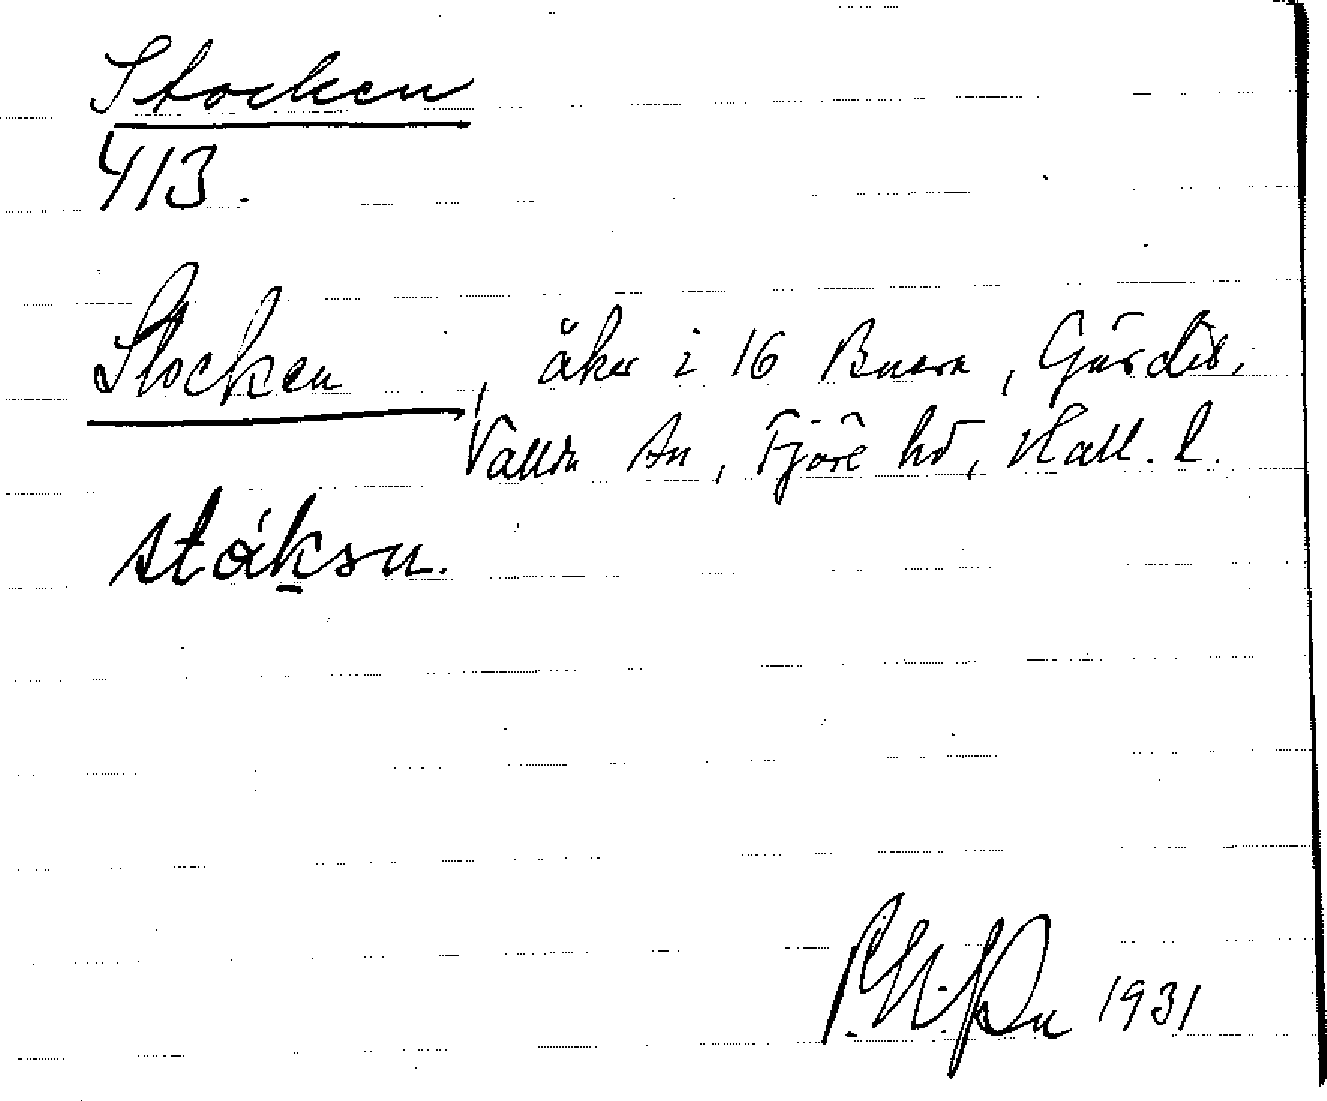 Stocken
413.
Stocken, åker i 16 Buera, Gärdet,
Valda sn, Fjäre hd, Hall. l.
ståksn.
1931